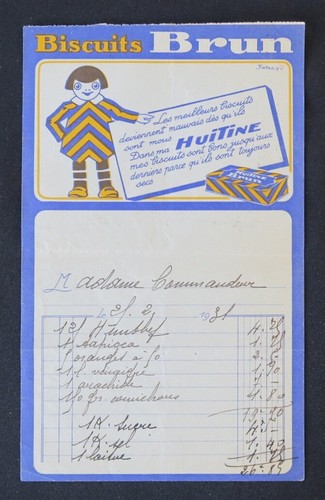 Biscuits Brun
Les meilleurs biscuits
deviennent mauvais dès qu'ils
sont mous
HUITINE
Dans ma
mes biscuits sont bons jusqu'aux
derniers parce qu'ils sont toujours
secs
Huitine
Brun
Madame Commandeur
2 1931
1 Tapioca 1.75
oranges à 50 2.5
1 l. 1.90
1
gr. cornichons 4.80
19.70
1K. Sucre
1K. sel 1.40
1 laitue
26.85